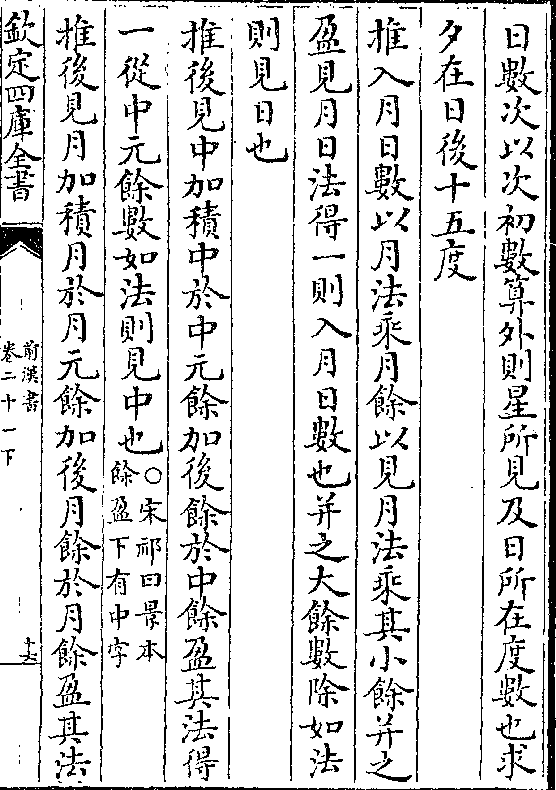 日數次以次初數算外則星所見及日所在度數也求
夕在日後十五度
推入月日數以月法乘月餘以見月法乘其小餘并之
盈見月日法得一則入月日數也并之大餘數除如法
則見日也
推後見中加積中於中元餘加後餘於中餘盈其法得
一從中元餘數如法則見中也○宋祁曰景本
餘盈下有中字
推後見月加積月於月元餘加後月餘於月餘盈其法
欽定四庫全書
前漢書
卷二十一下